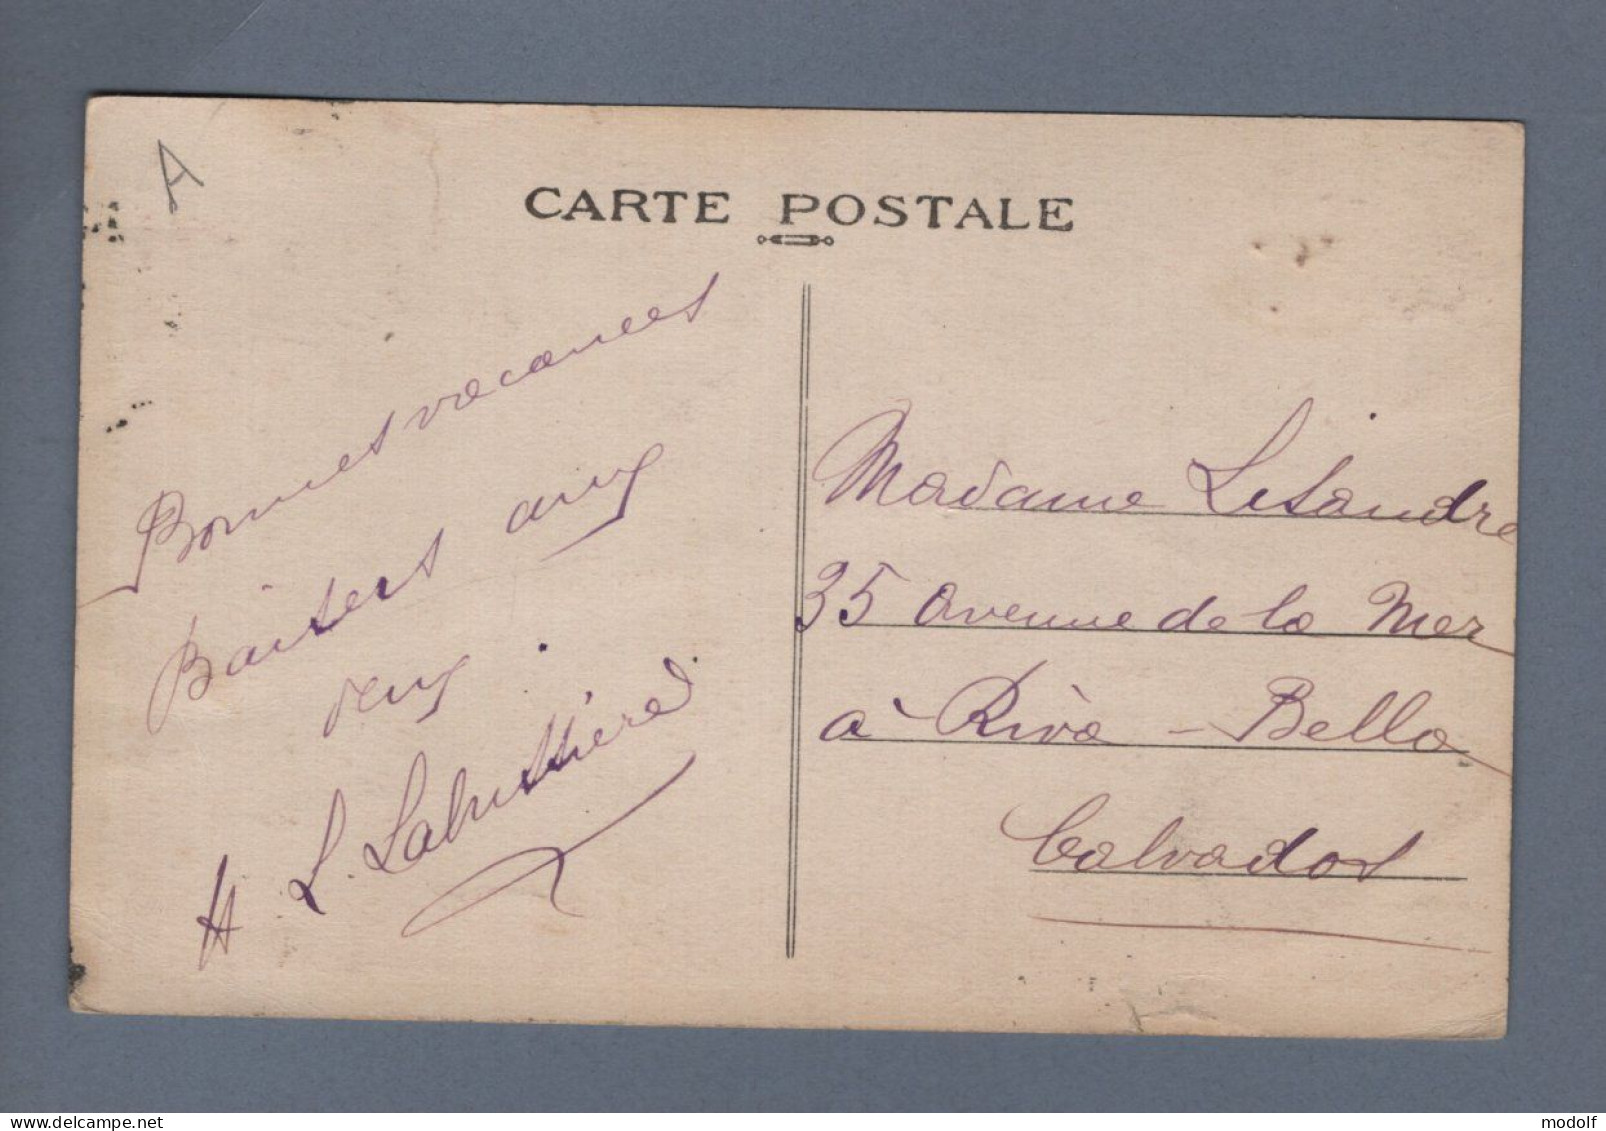 A
CARTE POSTALE
Bonnes vacances
Baisers aux
deux.
H L. Labussière
Madame Lesandre
35 avenue de la Mer
à Riva-Bella
Calvados
modolf